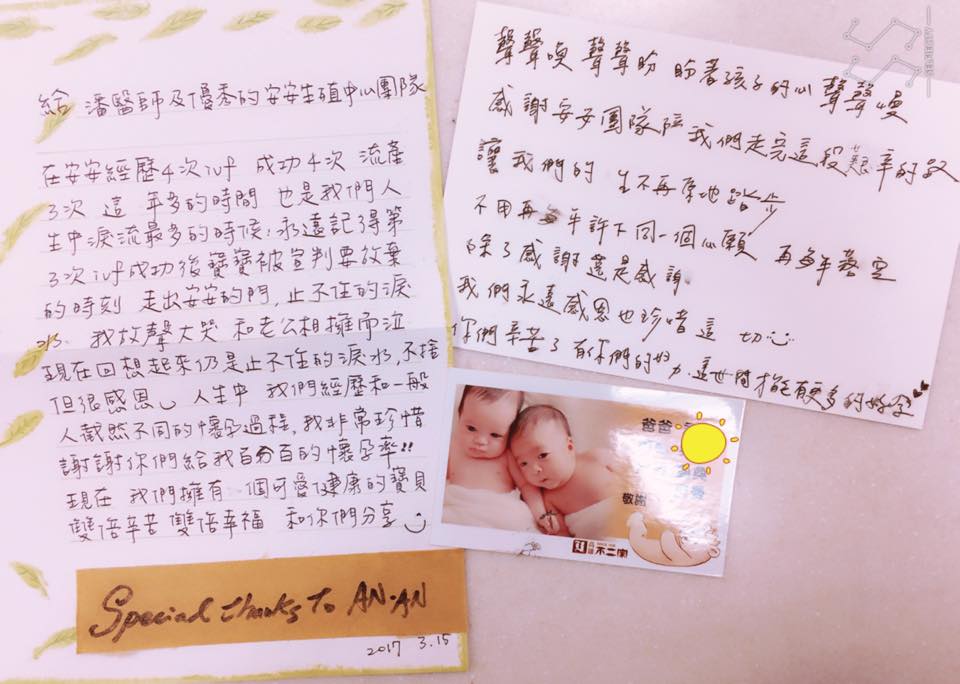 給 潘醫師及優秀的安安生殖中心團隊
在安安經歷4次ivf 成功4次 流產
3次 這 年多的時間 也是我們人
生中淚流最多的時候,永遠記得第
3次ivf成功後寶寶被宣判要放棄
的時刻 走出安安的門,止不住的淚
水. 我放聲大哭 和老公相擁而泣
現在回想起來仍是止不住的淚水,不捨
但很感恩 人生中 我們經歷和一般
人截然不同的懷孕過程,我非常珍惜
謝謝你們給我百分百的懷孕率!!
現在 我們擁有一個可愛健康的寶貝
雙倍辛苦 雙倍幸福 和你們分享
Special thanks To AN-AN
2017 3.15
聲聲喚 聲聲盼 盼著孩子的心 聲聲慢
感謝安安團隊陪我們走完這段艱辛的路
讓我們的 生不再原地踏步
不用再每年許下同一個心願 再每年落空
除了感謝還是感謝
我們永遠感恩也珍惜這 切
你們辛苦了 有你們的努力,這世間才能有更多的好孕
爸爸
敬謝
高雄
不二家
SELFIECITY